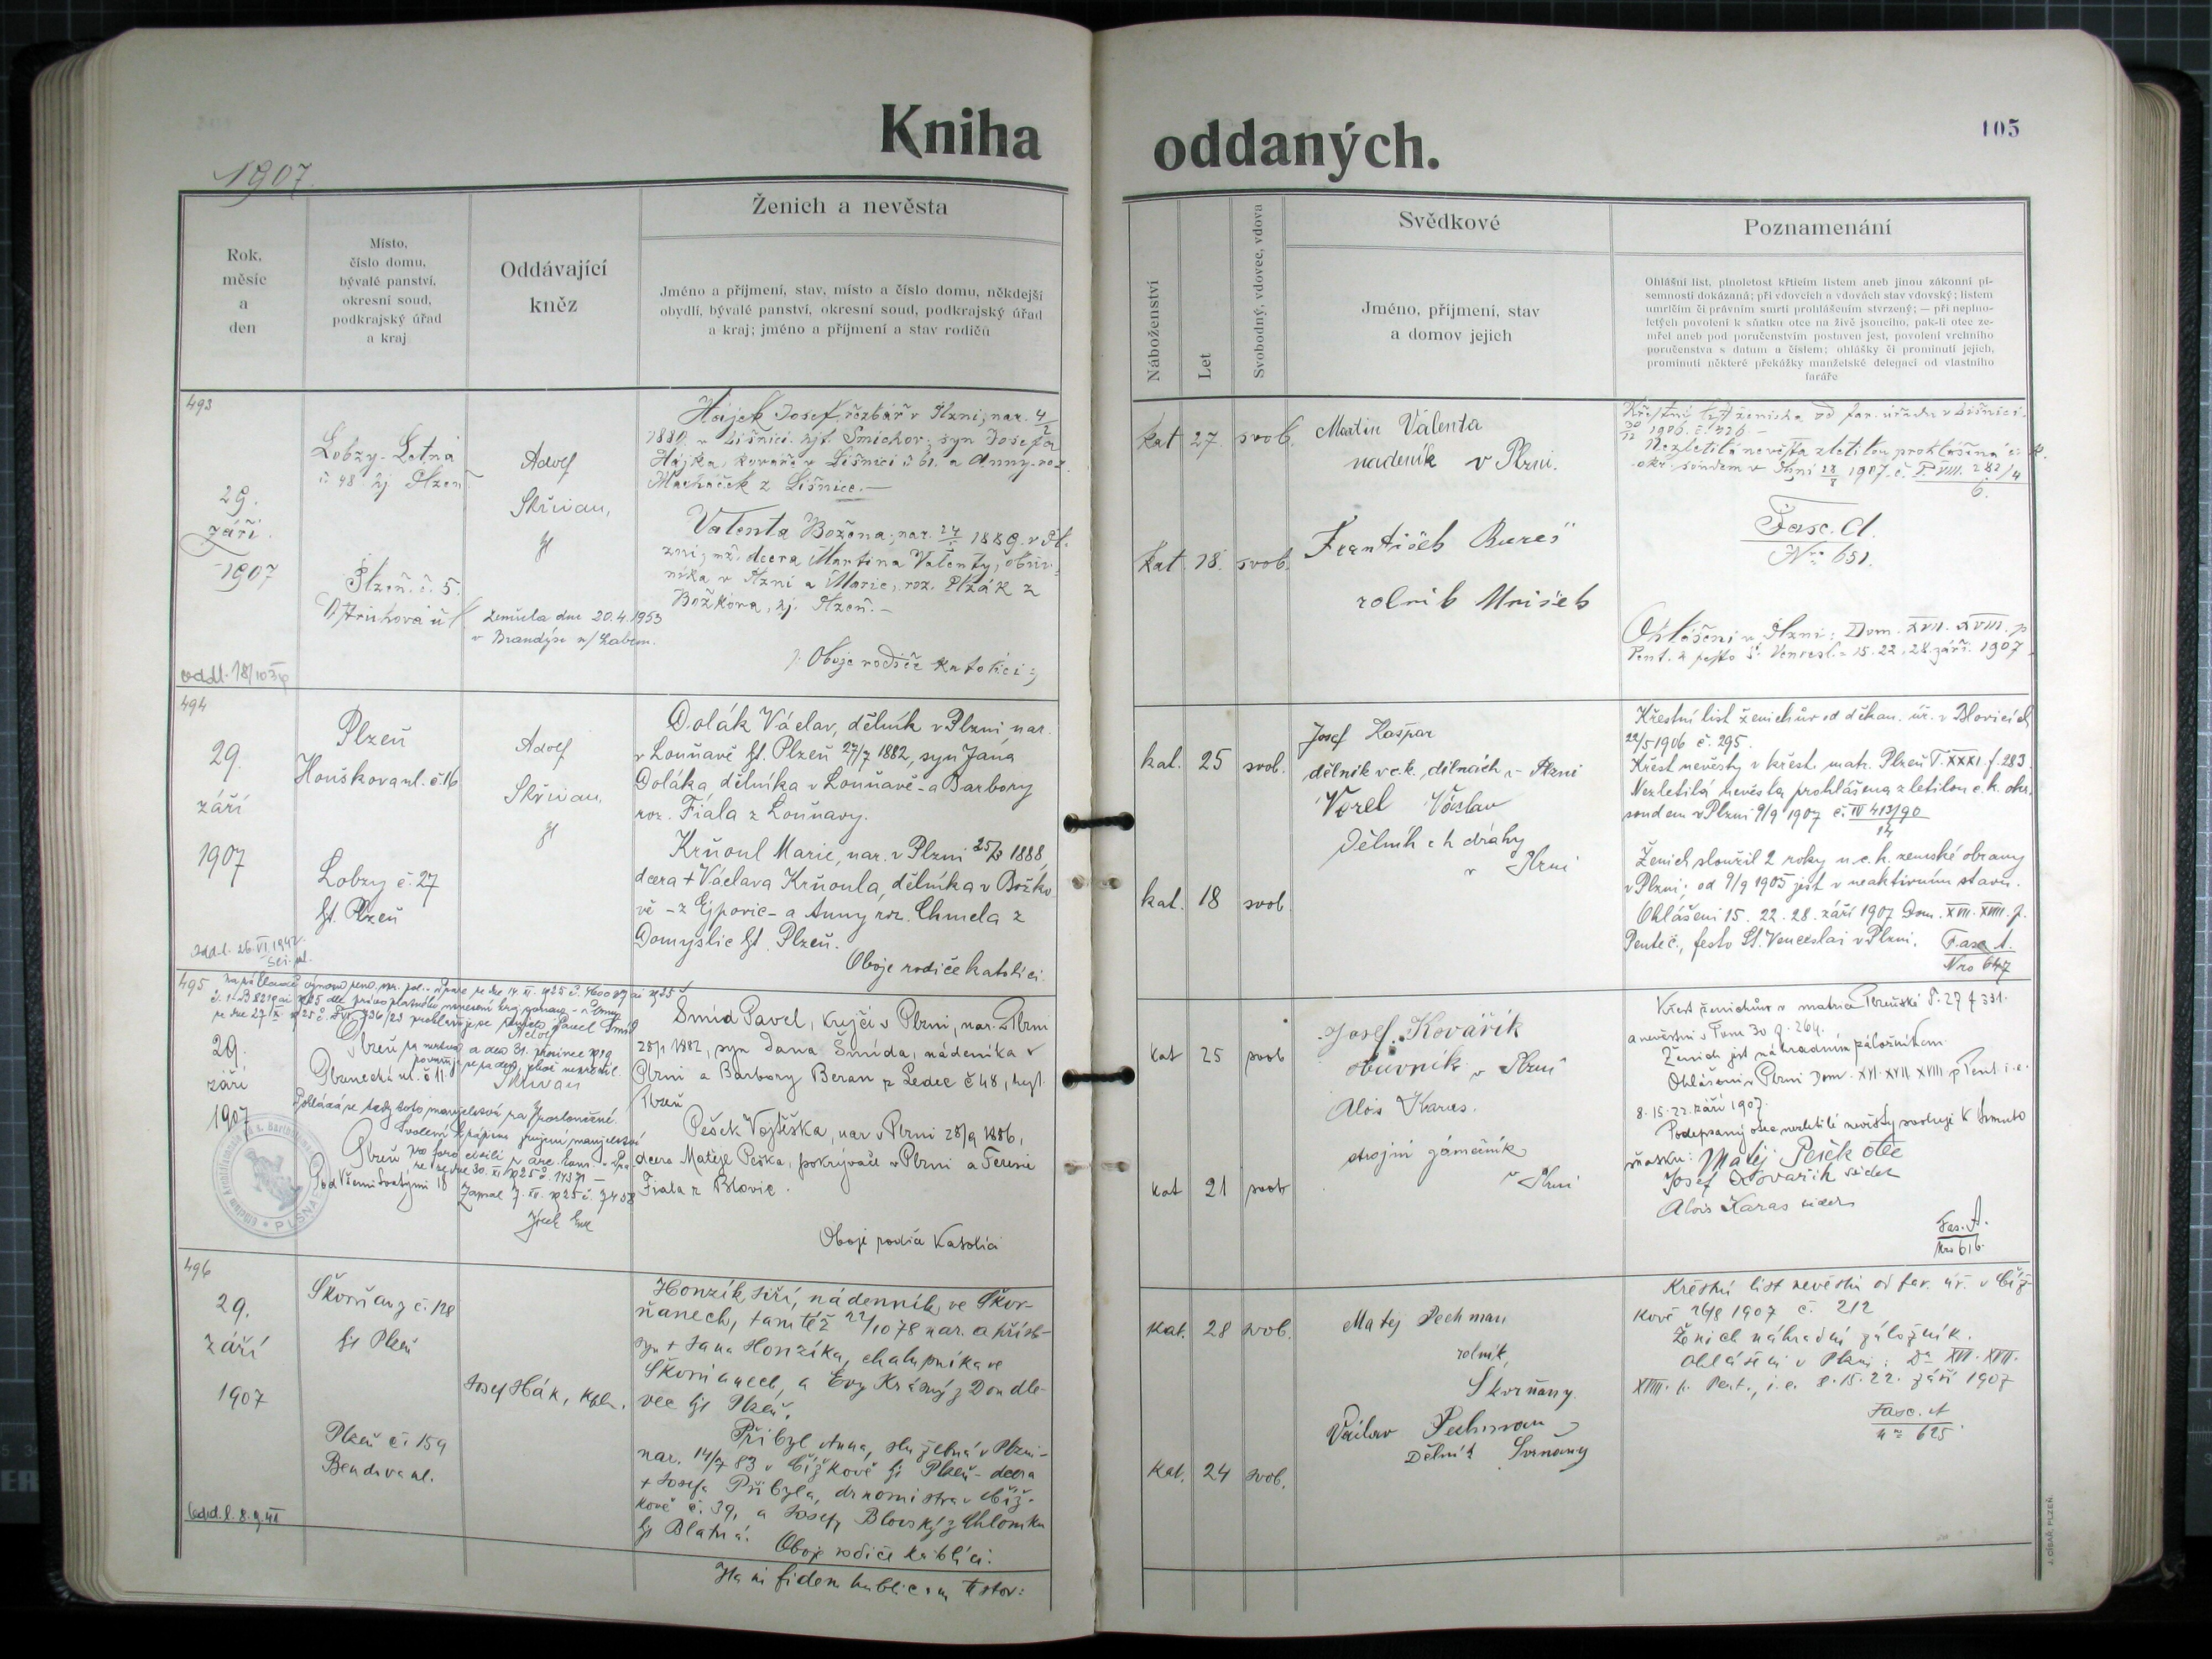 Kniha
oddaných.
105
1907.
Rok,
měsíc
a
den
Místo,
číslo domu,
bývalé panství,
okresní soud,
podkrajský úřad
a kraj
Oddávající
kněz
Ženich a nevěsta
Jméno a příjmení, stav, místo a číslo domu, někdejší
obydlí, bývalé panství, okresní soud, podkrajský úřad
a kraj; jméno a příjmení a stav rodičů
Náboženství
Let
Svobodný, vdovec, vdova
Svědkové
Jméno, příjmení, stav
a domov jejich
Poznamenání
Ohlášní list, plnoletost křticím listem aneb jinou zákonní pí-
semností dokázaná; při vdovcích a vdovách stav vdovský; listem
umrlčím či právním smrti prohlášením stvrzený; — při neplno-
letých povolení k sňatku otce na živě jsoucího, pak-li otec ze-
mřel aneb pod poručenstvím postaven jest, povolení vrchního
poručenstva s datum a číslem; ohlášky či prominutí jejich,
prominutí některé překážky manželské delegací od vlastního
faráře
493
29.
září
1907
Lobzy-Letná
č 48 hj Plzeň
Plzeň č. 5.
Adolf
Skřivan,
Zemřela dne 20.4.1953
v Brandýse n/Labem.
Hájek Josef, řezbář v Plzni, nar. 4/2
1880 v Lišnici hjt. Smíchov; syn Josefa
Hájka, kováře v Lišnici č 61. a Anny roz.
Macháček z Lišnice.—
Valenta Božena, nar. 1889 v Pl-
zni; dcera Martina Valenty,
v Plzni a Marie, roz. Plzák z
Božkova, hj. Plzeň.—
Oboje rodiče katolíci
kat 27 svob.
kat. 18. svob.
Martin Valenta
nádeník v Plzni.
František Bureš
rolník
Křestní list ženicha od far. úřadu v Lišnici
1906. č. 326 —
Nezletilá nevěsta zletilou prohlášena c. k.
okr. soudem v Plzni 1907 č.
Fasc. A.
Nro 651.
Ohlášeni v Plzni: Dom. XVII. XVIII. p
Pent. a festo S. Vencesl. = 15. 22. 28. září 1907
494
29.
září
1907
Plzeň
Houškova ul. č 16
Lobzy č. 27
ht. Plzeň
Adolf
Skřivan,
Dolák Václav, dělník v Plzni nar.
v Louňavě ht. Plzeň 27/7 1882, syn Jana
Doláka, dělníka v Louňavě - a Barbory
roz. Fiala z Louňavy.
Krňoul Marie, nar. v Plzni 25/3 1888,
dcera + Václava Krňoula, dělníka v Božko-
vě - z Ejpovic - a Anny roz. Chmela z
Domyslic ht. Plzeň.
Oboje rodiče katolíci.
kat. 25 svob.
kat. 18 svob
Josef Kašpar
dělník v c.k. dílnách v Plzni
Vorel Václav
Dělník dráhy
v Plzni
Křestní list ženichův od děkan. úř. v Blovicích
22/5 1906 č. 295.
Křest nevěsty v křest. matr. Plzeň T. XXXI. f. 283.
Nezletilá nevěsta prohlášena zletilou c. k. okr.
soudem v Plzni 9/9 1907 č. IV 413/90
Ženich sloužil 2 roky u c. k. zemské obrany
v Plzni; od 9/9 1905 jest v neaktivním stavu.
Ohlášeni 15. 22. 28. září 1907 Dom. XVII. XVIII. p.
Pentec., festo St. Venceslai v Plzni. Fasc A.
Nro 647
495
29.
září
1907
Plzeň
Plzenecká ul. č 11
Plzeň
Pod Všemi Svatými 18
Skřivan
Šmíd Pavel, krejčí v Plzni, nar. v Plzni
25/1 1882, syn Jana Šmída, nádeníka v
Plzni a Barbory Beran z Ledec č 48, hejt.
Plzeň
Pešek Vojtěška, nar v Plzni 28/9 1886,
dcera Matěje Peška, pokrývače v Plzni a Terezie
Fiala z Blovic.
Oboje rodiče katolíci
kat 25 svob
kat 21 svob
Josef Kovářík
obuvník v Plzni
Alois Karas.
strojní zámečník
v Plzni
Křest ženichův v matrice Plzeňské T. 27 f 331.
a nevěstin v Tom 30 g. 264.
Ženich jest náhradním záložníkem.
Ohlášeni v Plzni Dom. XVI. XVII. XVIII p Pent i. e.
8. 15. 22. září 1907.
Podepsaný otec nezletilé nevěsty svoluje k tomuto
sňatku: Matěj Pešek otec
Josef Kovářík svědek
Alois Karas svědek
Fas. A.
Nro 616.
496
29.
září
1907
Škvrňany č. 128
ht Plzeň
Plzeň č. 159
Bendova ul.
Josef Hák, kpl.
Honzík Jiří, nádenník ve Škvr-
ňanech, tamtéž 22/10 78 nar. a přísl.
syn + Jana Honzíka, chalupníka ve
Škvrňanech, a Evy Krásný z Doudle-
vec ht Plzeň.
Přibyl Anna, služebná v Plzni -
nar. 14/7 83 v Čížkově ht Plzeň - dcera
+ Josefa Přibyla, domistra v Číž-
kově č. 39, a Josefy Blovský z Chlomku
ht Blatná. Oboje rodiče katolíci.
kat. 28 svob.
kat. 24 svob.
Matěj Pechman
rolník,
Škvrňany.
Václav Pechman
Dělník Škvrňany
Křestní list nevěstin od far. úř. v Číž-
kově 26/8 1907 č. 212
Ženich náhradní záložník.
Ohlášeni v Plzni: Dca XVI. XVII.
XVIII. p. Pent., i. e. 8. 15. 22. září 1907
Fasc. A
Nro 625.
J. CÍSAŘ, PLZEŇ